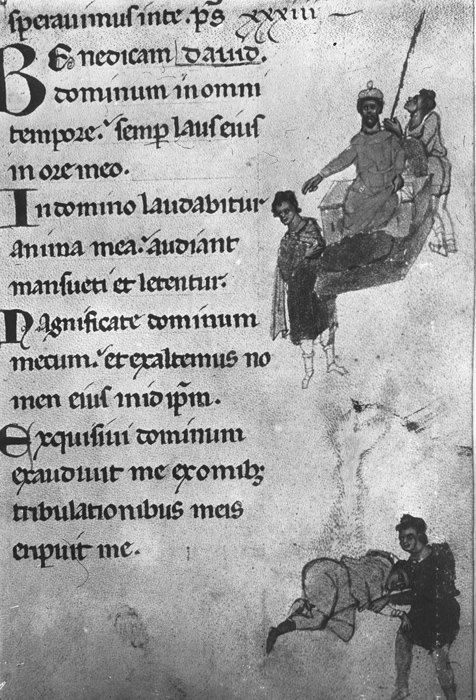 sperauimus inte. p̄s xxxiii
Benedicam dauid.
dominum in omni
tempore. semp laus eius
in ore meo.
In domino laudabitur
anima mea. audiant
mansueti et letentur.
Magnificate dominum
mecum. et exaltemus no
men eius in id ipm̄.
Exquisiui dominum
exaudiuit me ex omib;
tribulationibus meis
eripuit me.